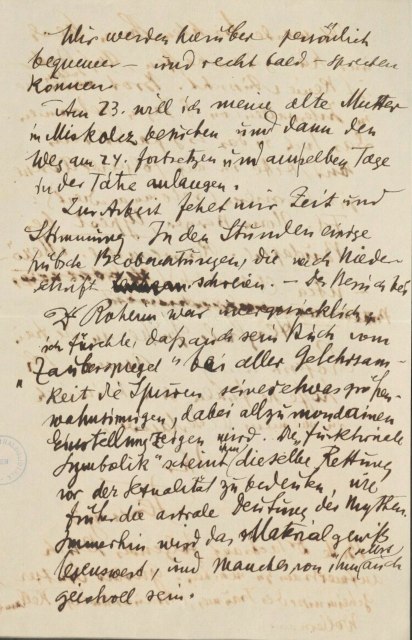 Wir werden hierüber persönlich
bequemer – und recht bald – sprechen
können.
Am 23. will ich meine alte Mutter
in Miskolcz besuchen und dann den
Weg am 24. fortsetzen und am selben Tage
in der Tátra anlangen.
Zur Arbeit fehlt mir Zeit und
Stimmung. In den Stunden einige
hübsche Beobachtungen, die nach Nieder-
schrift schreien. – Der Besuch bei
Dr Roheim war unerquicklich,
ich fürchte, dass auch sein Buch vom
„Zauberspiegel" bei aller Gelehrsam-
keit die Spuren seiner etwas größen-
wahnsinnigen, dabei allzu mondainen
Einstellung zeigen wird. Die „funktionale
Symbolik" scheint ihm dieselbe Rettung
vor der Sexualität zu bedeuten, wie
früher die astrale Deutung des Mythen.
Immerhin wird das Material gewiß
lesenswert, und Manches von ihm selbst auch
geistvoll sein.